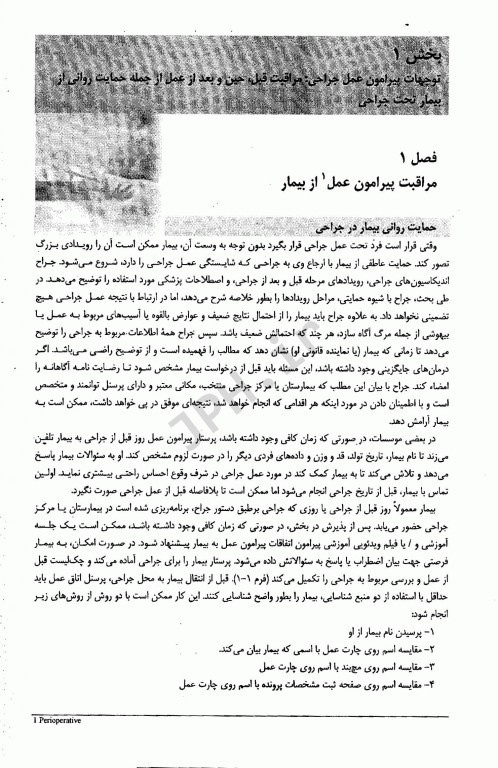 بخش ۱
توجهات پیرامون عمل جراحی: مراقبت قبل، حین و بعد از عمل از جمله حمایت روانی از
بیمار تحت جراحی
فصل ۱
مراقبت پیرامون عمل۱ از بیمار
حمایت روانی بیمار در جراحی
وقتی قرار است فرد تحت عمل جراحی قرار بگیرد بدون توجه به وسعت آن، بیمار ممکن است آن را رویدادی بزرگ
تصور کند. حمایت عاطفی از بیمار با ارجاع وی به جراحی که شایستگی عمل جراحی را دارد، شروع می‌شود. جراح
اندیکاسیون‌های جراحی، رویدادهای مرحله قبل و بعد از جراحی، و اصطلاحات پزشکی مورد استفاده را توضیح می‌دهد. در
طی بحث، جراح با شیوه حمایتی، مراحل رویدادها را بطور خلاصه شرح می‌دهد، اما در ارتباط با نتیجه عمل جراحی هیچ
تضمینی نخواهد داد. به علاوه جراح باید بیمار را از احتمال نتایج ضعیف و عوارض بالقوه یا آسیب‌های مربوط به عمل یا
بیهوشی از جمله مرگ آگاه سازد، هر چند که احتمالش ضعیف باشد. سپس جراح همهٔ اطلاعات مربوط به جراحی را توضیح
می‌دهد تا زمانی که بیمار (یا نماینده قانونی او) نشان دهد که مطالب را فهمیده است و از توضیح راضی می‌باشد. اگر
درمان‌های جایگزینی وجود داشته باشد، این مسئله باید قبل از درخواست بیمار مشخص شود تا رضایت نامه آگاهانه را
امضاء کند. جراح با بیان این مطلب که بیمارستان یا مرکز جراحی منتخب، مکانی معتبر و دارای پرسنل توانمند و متخصص
است و با اطمینان دادن در مورد اینکه هر اقدامی که انجام خواهد شد، نتیجه‌ای موفق در پی خواهد داشت، ممکن است به
بیمار آرامش دهد.
در بعضی موسسات، در صورتی که زمان کافی وجود داشته باشد، پرستار پیرامون عمل روز قبل از جراحی به بیمار تلفن
می‌زند تا نام بیمار، تاریخ تولد، قد و وزن و داده‌های فردی دیگر را در صورت لزوم مشخص کند. او به سئوالات بیمار پاسخ
می‌دهد و تلاش می‌کند تا به بیمار کمک کند در مورد عمل جراحی در شرف وقوع احساس راحتی بیشتری نماید. اولین
تماس با بیمار، قبل از تاریخ جراحی انجام می‌شود اما ممکن است تا بلافاصله قبل از عمل جراحی صورت نگیرد.
بیمار معمولاً روز قبل از جراحی یا روزی که جراحی برطبق دستور جراح، برنامه‌ریزی شده است در بیمارستان یا مرکز
جراحی حضور می‌یابد. پس از پذیرش در بخش، در صورتی که زمان کافی وجود داشته باشد، ممکن است یک جلسه
آموزشی و / یا فیلم ویدئویی آموزشی پیرامون اتفاقات پیرامون عمل به بیمار پیشنهاد شود. در صورت امکان، به بیمار
فرصتی جهت بیان اضطراب یا پاسخ به سئوالاتش داده می‌شود. پرستار بیمار را برای جراحی آماده می‌کند و چک‌لیست قبل
از عمل و بررسی مربوط به جراحی را تکمیل می‌کند (فرم ۱-۱). قبل از انتقال بیمار به محل جراحی، پرسنل اتاق عمل باید
حداقل با استفاده از دو منبع شناسایی، بیمار را بطور واضح شناسایی کنند. این کار ممکن است با دو روش از روش‌های زیر
انجام شود:
۱- پرسیدن نام بیمار از او
۲- مقایسه اسم روی چارت عمل با اسمی که بیمار بیان می‌کند.
۳- مقایسه اسم روی مچ‌بند با اسم روی چارت عمل
۴- مقایسه اسم روی صفحه ثبت مشخصات پرونده با اسم روی چارت عمل
1 Perioperative